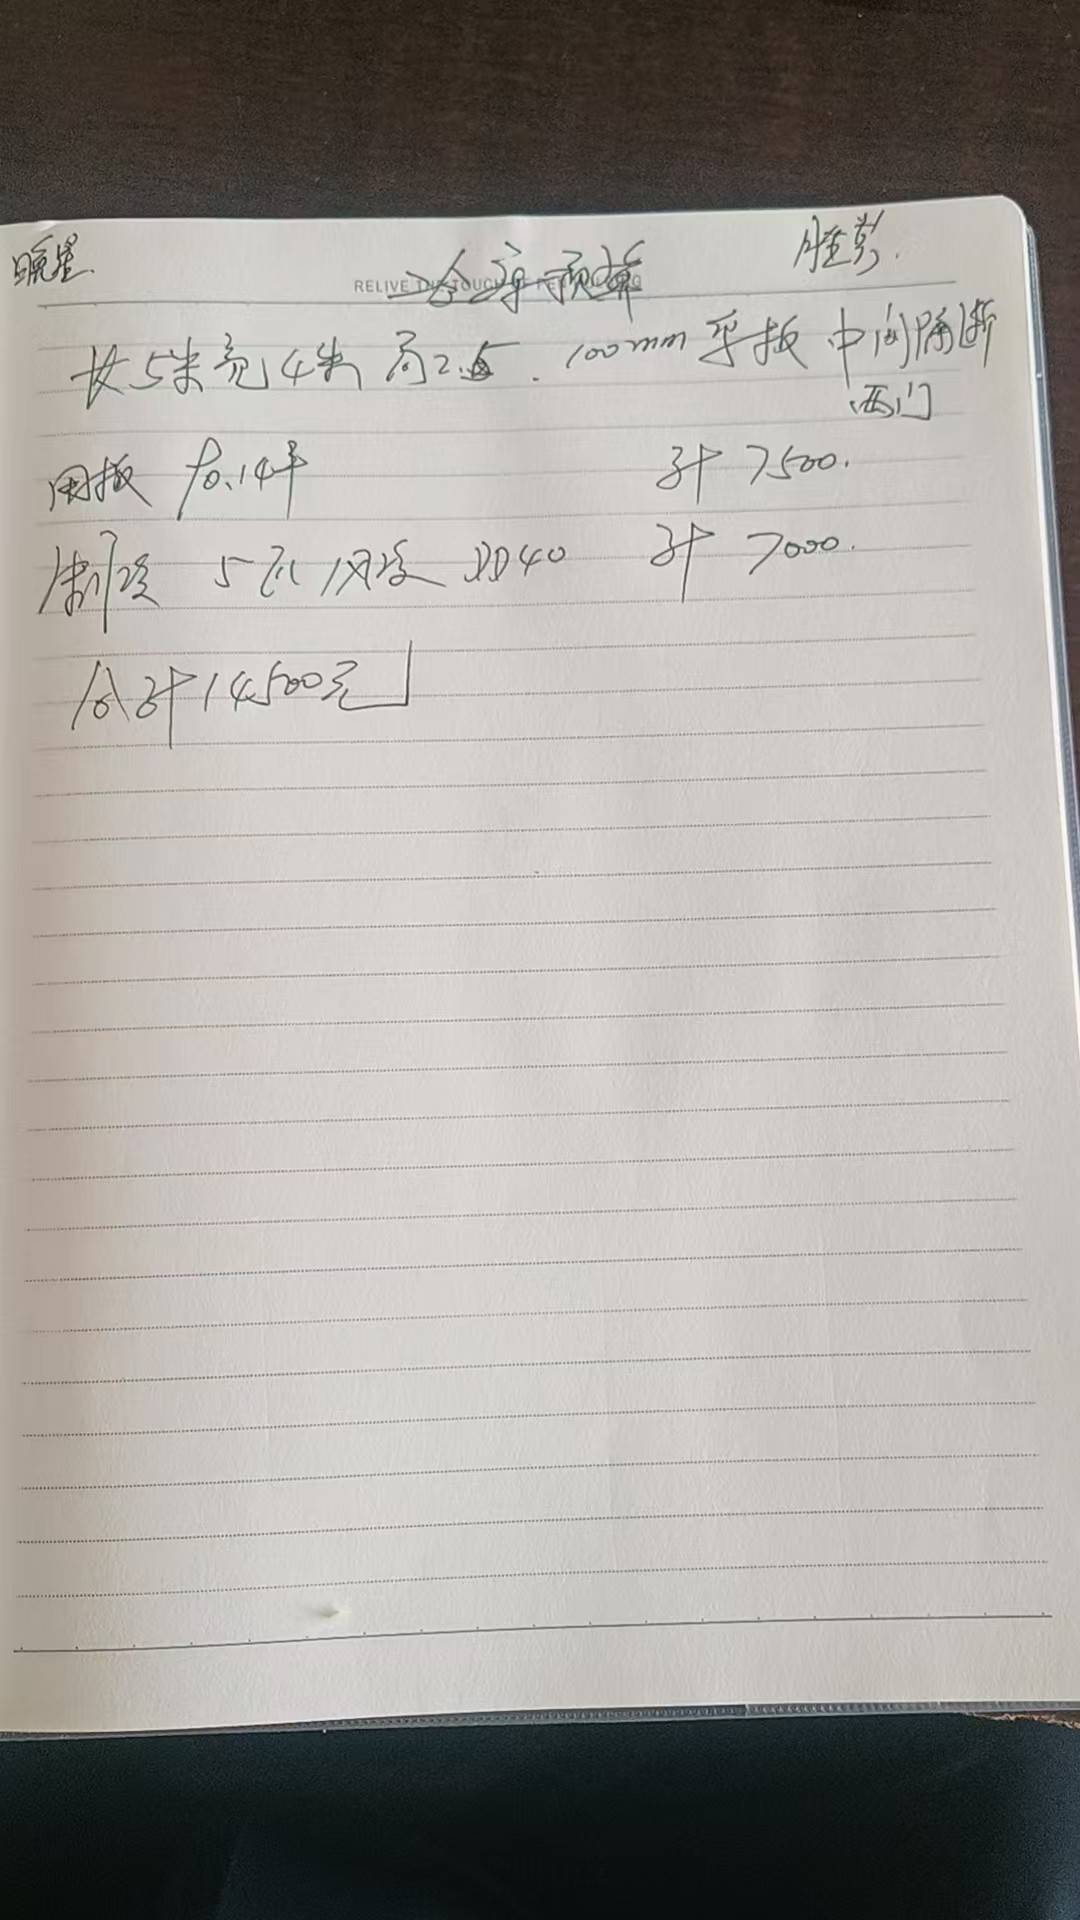 晓星. 冷库预算 胜芳.
RELIVE THE TOUCH OF PEN
长5米宽4米 高2.5. 100mm 平板 中间隔断
两门
用板 70.14平 计 7500.
制冷 5匹 风冷 DD40 计 7000.
合计14500元